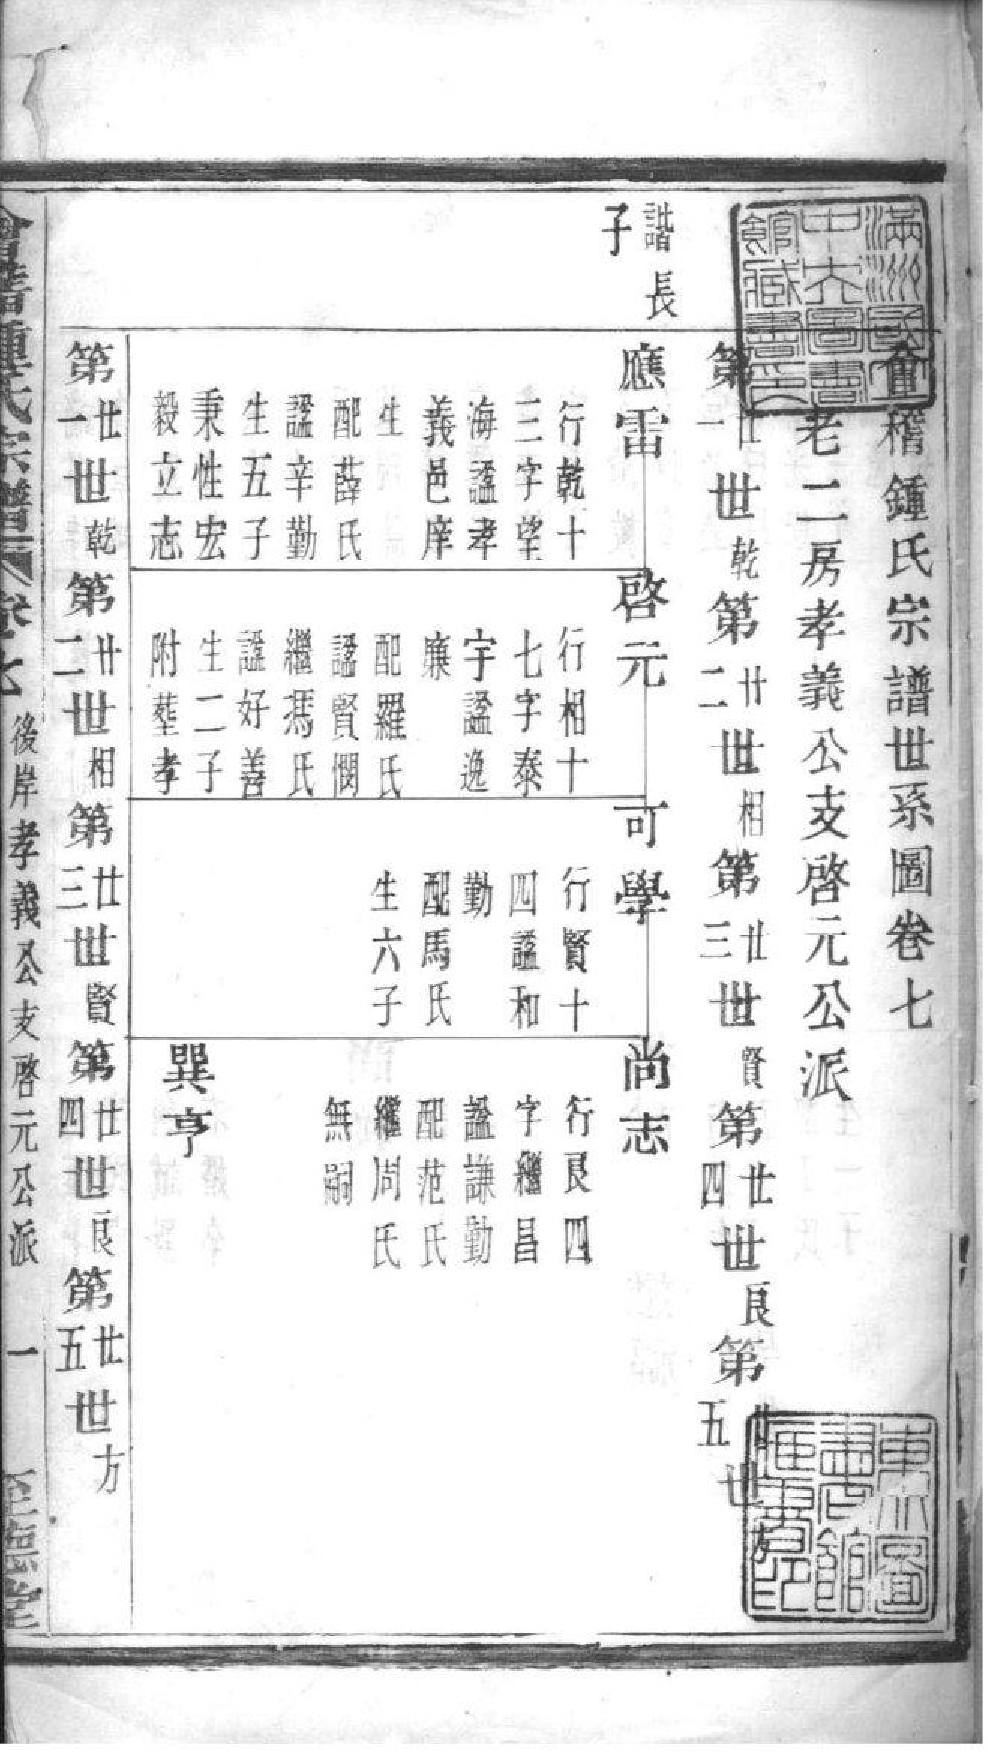 會稽鍾氏宗譜世系圖卷七
老二房孝義公支啓元公派
第廿一世乾第廿二世相第廿三世賢第廿四世良第廿五世方
諧長
子
應雷
行乾十
三字望
海諡孝
義邑庠
生
配薛氏
諡辛勤
生五子
秉性宏
毅立志
啓元
行相十
七字泰
宇諡逸
廉
配羅氏
諡賢憫
繼馮氏
諡好善
生二子
附塟孝
可學
行賢十
四諡和
勤
配馬氏
生六子
尚志
行良四
字繼昌
諡謙勤
配范氏
繼周氏
無嗣
巽亨
第廿一世乾第廿二世相第廿三世賢第廿四世良第廿五世方
會稽鍾氏宗譜 卷七 後岸孝義公支啓元公派 一 至德堂
滿洲國
中央圖書
館藏書印
東北圖
書館